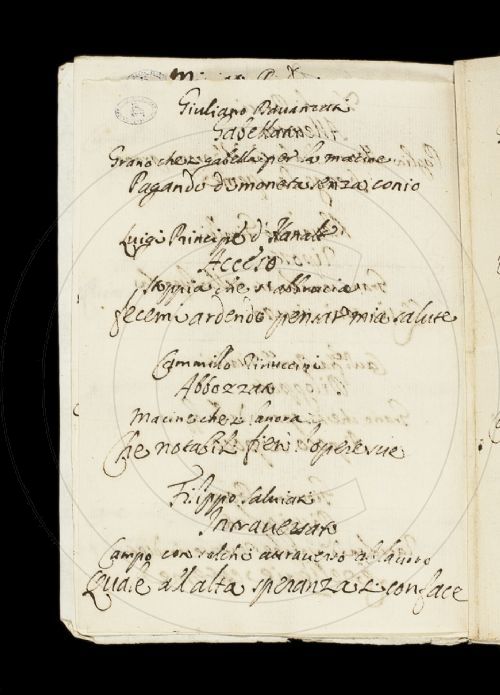 Giuliano Davanzati
Gabellato
Grano che si gabella per la macine
Pagando di moneta senza conio
Luigi Principe d'
Acceso
Stoppia che s'abbracia
Fecemi ardendo pensar mia salute
Cammillo Rinuccini
Abbozzato
Macine che si lavora
Che notabili fien l'opere sue
Filippo Salviati
Intraversato
Campo con solchi attraverso al lavoro
Qual'è all'alta speranza si conface